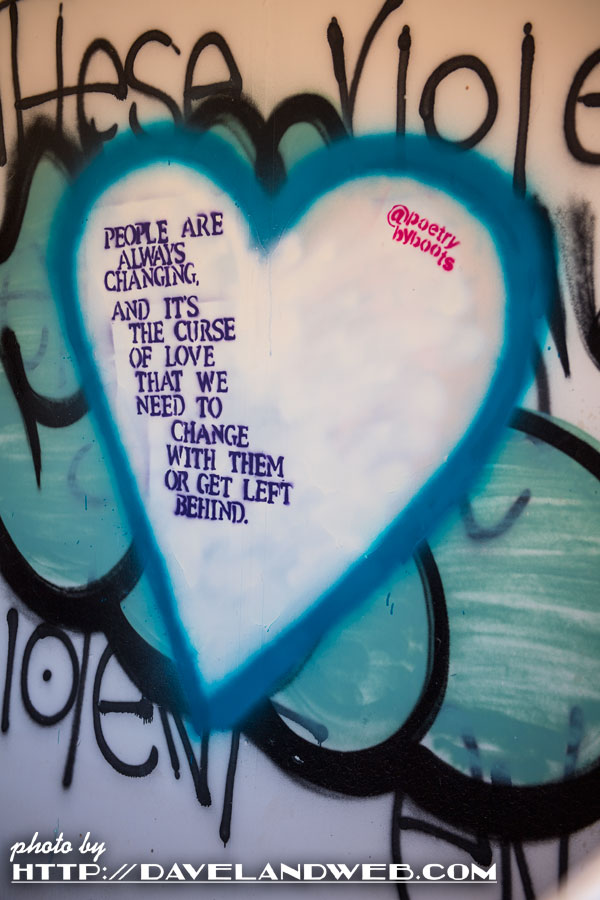 These Viole
PEOPLE ARE
ALWAYS
CHANGING,
AND IT'S
THE CURSE
OF LOVE
THAT WE
NEED TO
CHANGE
WITH THEM
OR GET LEFT
BEHIND.
@poetry
byboots
iolent
photo by
HTTP://DAVELANDWEB.COM